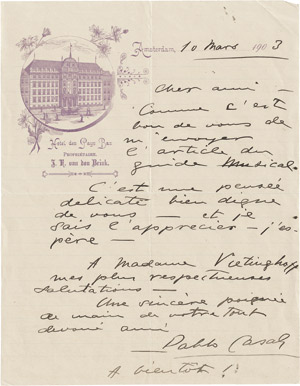 Amsterdam, 10 Mars 1903
Hôtel des Pays Bas
PROPRIÉTAIRE
J. H. van den Brink.
Cher ami –
Comme c'est
bon de vous de
m'envoyer
l'article du
guide Musical.
C'est une pensée
délicate bien digne
de vous – et je
sais l'apprecier – j'es-
père –
A Madame Vietinghoff
mes plus respectueuses
salutations –
Une sincère poignée
de main de votre tout
devoué ami
Pablo Casals
A bientôt !!